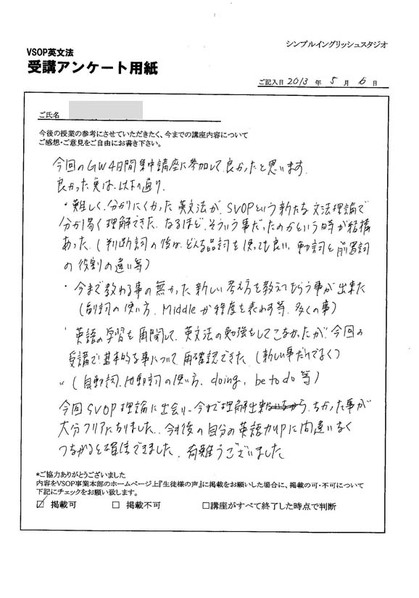 シンプルイングリッシュスタジオ
VSOP英文法
受講アンケート用紙
ご記入日 2013 年 5 月 6 日
ご氏名
今後の授業の参考にさせていただきたく、今までの講座内容について
ご感想・ご意見をご自由にお書き下さい。
今回のGW4日間集中講座に参加して良かったと思います。
良かった点は、以下の通り。
・難しく、分かりにくかった英文法が、SVOPという新たな文法理論で
分かり易く理解できた。なるほど、そういう事だったのかという時が結構
あった。(判断詞の後は、どんな品詞を使っても良い、動詞と前置詞
の役割の違い等)
・今まで教わる事の無かった新しい考え方を教えてもらう事が出来た
(副詞の使い方、Middleが程度を表わす等、多くの事)
・英語の学習を再開して、英文法の勉強をしてこなかったが今回の
受講で基本的な事について再確認できた(新しい事だけでなく)
(自動詞、他動詞の使い方、doing, be to do 等)
今回SVOP理論に出会い、今まで理解出来なかった事が
大分クリアになりました。今後の自分の英語力UPに間違いなく
つながると確信できました。有難うございました
*ご協力ありがとうございました
内容をVSOP事業本部のホームページ上『生徒様の声』に掲載をお願いした場合に、掲載の可・不可について
下記にチェックをお願い致します。
☑ 掲載可 □ 掲載不可 □講座がすべて終了した時点で判断